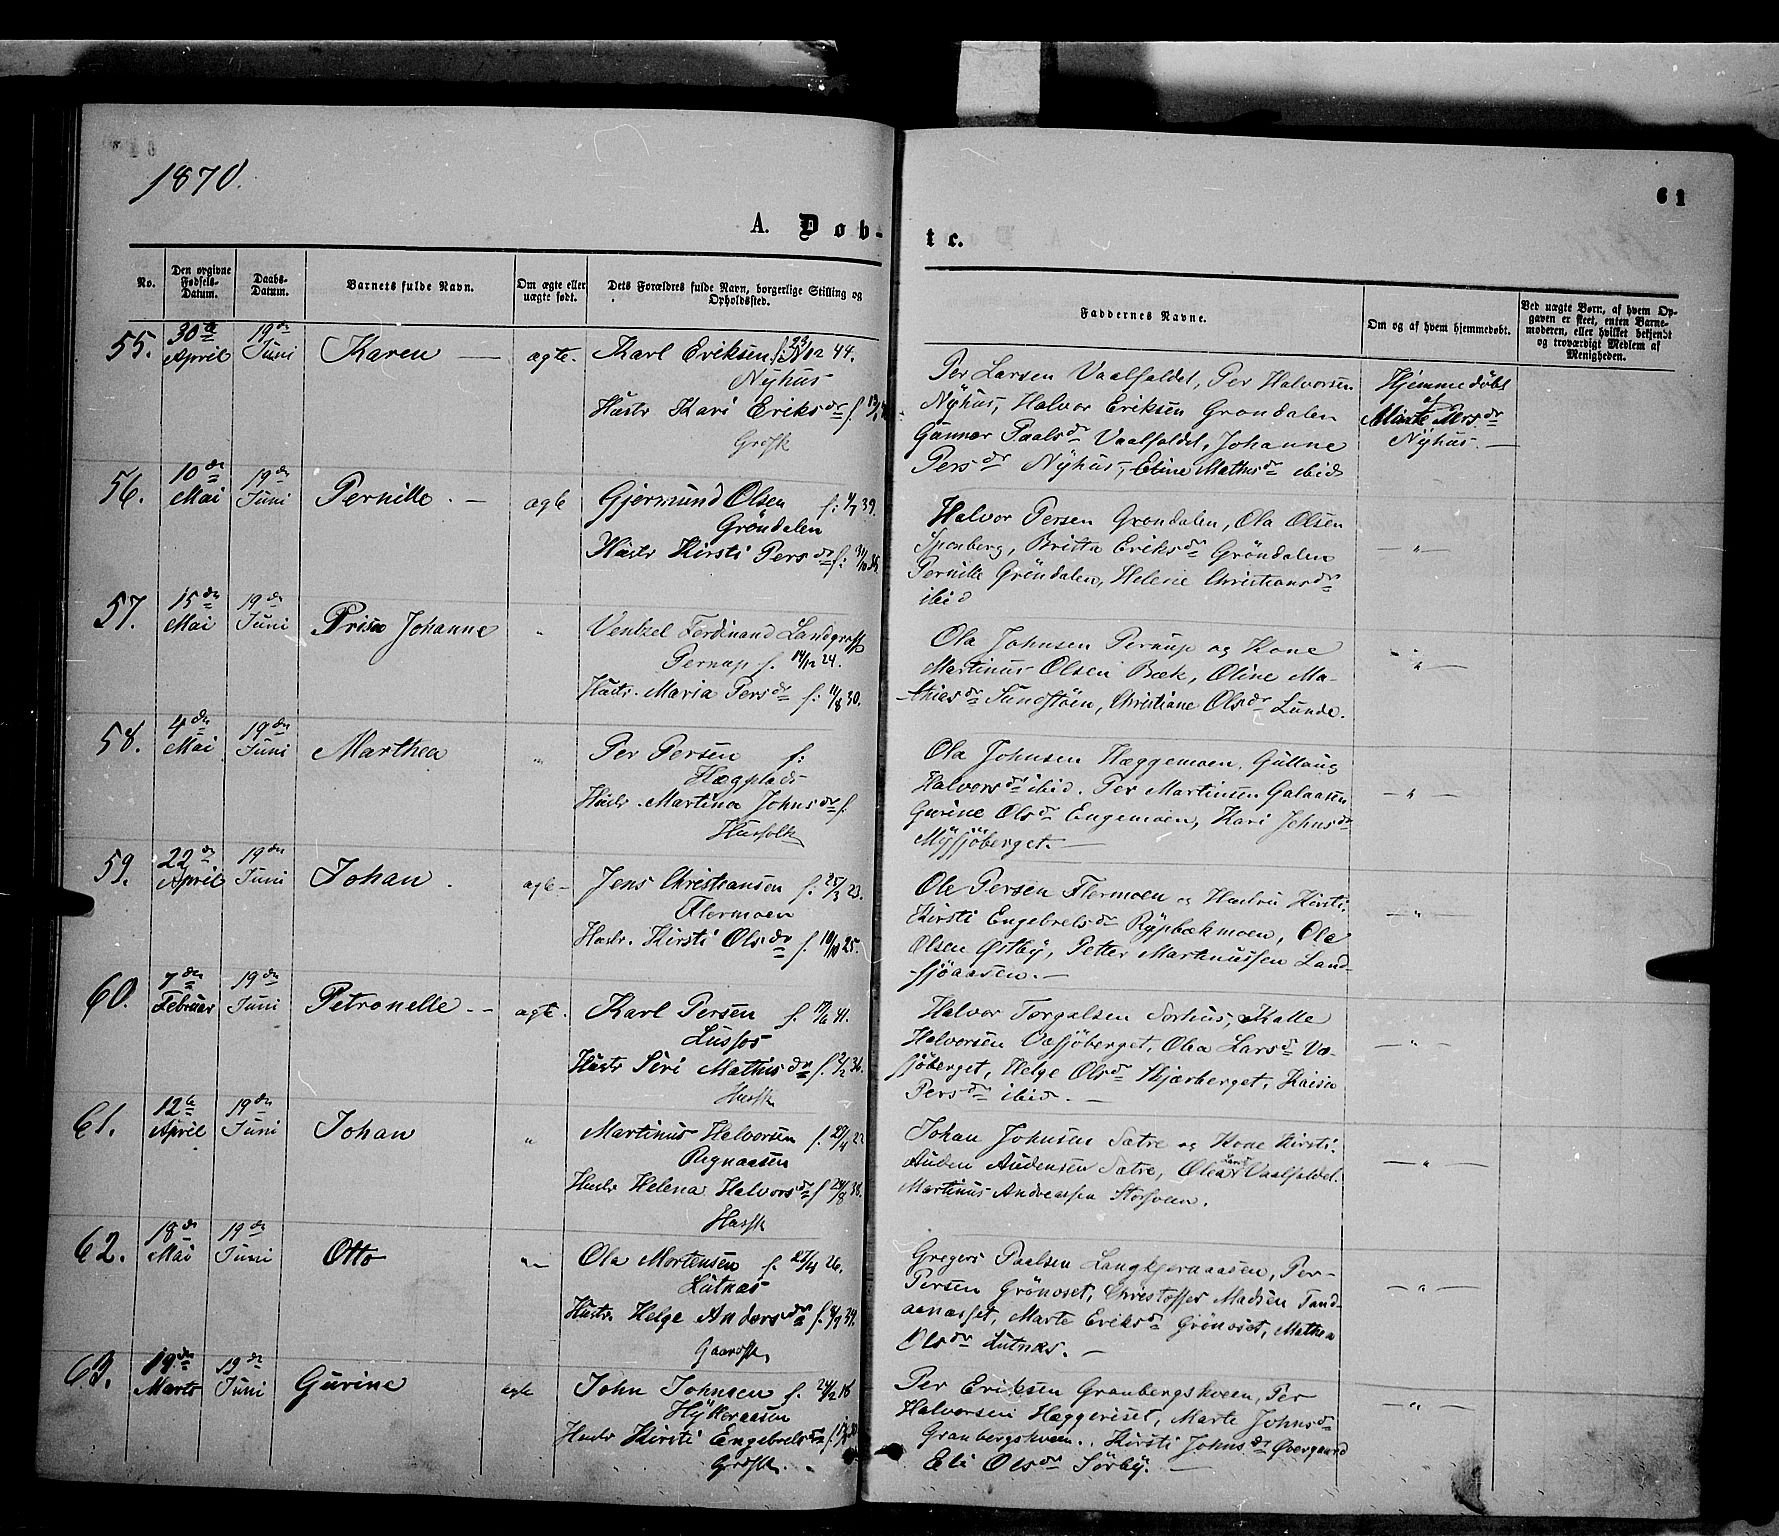 1870.
61
A. Døb-
te.
No.
Den opgivne
Fødsels-
Datum.
Daabs-
Datum.
Barnets fulde Navn.
Om ægte eller
uægte født.
Dets Forældres fulde Navn, borgerlige Stilling og
Opholdssted.
Faddernes Navne.
Om og af hvem hjemmedøbt.
Ved uægte Børn, af hvem Op-
gaven er skeet, enten Barne-
moderen, eller hvilket bekjendt
og troværdigt Medlem af
Menigheden.
55. 30te April 19de Juni Karen — ægte. Karl Eriksen f. 44.
Nyhus
Hustr Kari Eriksdr f.
Grdsfk
Per Larsen Vaalfaldet, Per Halvorsen
Nyhus, Halvor Eriksen Grøndalen
Gunnor Paalsdr Vaalfaldet, Johanne
Persdr Nyhus, Eline Mathisdr ibid
Hjemmedøbt
af
Marte
Nyhus. —
56. 10de Mai 19de Juni Pernille. — ægte Gjermund Olsen f: 4/7 39.
Grøndalen
Hustr Kirsti Persdr f:
Halvor Persen Grøndalen, Ola Olsen
Britta Eriksdr Grøndalen
Pernille Grøndalen, Helene Christiansdr
ibid
— " —
57. 15de Mai 19de Juni Johanne " Ventzel Ferdinand Landgraff
Pernap f. 14/12 24.
Hustr. Maria Persdr f: 11/8 30.
Ola Johnsen Pernup og Kone
Martinus Olsen Bæk, Oline Ma-
thiasdr Sundstøen, Christiane Olsdr Lunde.
— " —
58. 4de Mai 19de Juni Marthea " Per Persen f:
Hægplads
Hustr. Martina Johnsdr f.
Husfolk
Ola Johnsen Hæggemoen, Gullaug
Halvorsdr ibid. Per Martinsen Galaasen
Gurine Olsdr Engemoen, Kari Johnsdr
Mysjøberget. —
— " —
59. 22de April 19de Juni Johan. ægte — Jens Christiansen f: 25/3 23.
Flermoen
Hustr. Kirsti Olsdr f. 10/10 25.
Ole Persen Flermoen og Hustru Kirsti,
Kirsti Engebretsdr Rypbækmoen, Ola
Olsen Østby, Petter Martinussen Land-
sjøaasen. —
— " —
60. 7de Februar 19de Juni Petronelle — ægte. Karl Persen f. 41.
Lussos
Hustr Siri Mathisdr f. 36.
Husfk
Halvor Torgalsen Sorhus, Kalle
Halvorsen Væsjøberget, Olea Larsdr Væ-
sjøberget, Helge Olsdr Kjærberget,
Persdr ibid. —
— " —
61. 12te April 19de Juni Johan " Martinus Halvorsen f. 29/4
Hustr Helena Halvorsdr f 24/8
Husfk
Johan Johnsen Sætre og Kone Kirsti.
Auden Audensen Sætre, Olea Vaalfaldet.
Martinus Andreassen Storsveen.
— " —
62. 18de Mai 19de Juni Otto " Ola Mortensen f. 27/4 26.
Lutnæs
Hustr. Helge Andersdr f. 4/9 29.
Gaardfk
Gregers Paalsen Langkjernaasen, Per
Persen Grønoset, Christoffer Madsen Tand-
aanæsset, Marte Eriksdr Grønoset, Mathea
Olsdr Lutnæs. —
— " —
63. 19de Marts 19de Juni Gurine ægte John Johnsen f. 24/2 18
Hylleraasen
Hustr Kirsti Engebretsdr f.
Grdsfk.
Per Eriksen Granbergskveen, Per
Halvorsen Hæggeriset, Marte Johnsdr
Granbergskveen., Kirsti Johnsdr Øvergaard
Eli Olsdr Sørby. —
— " —